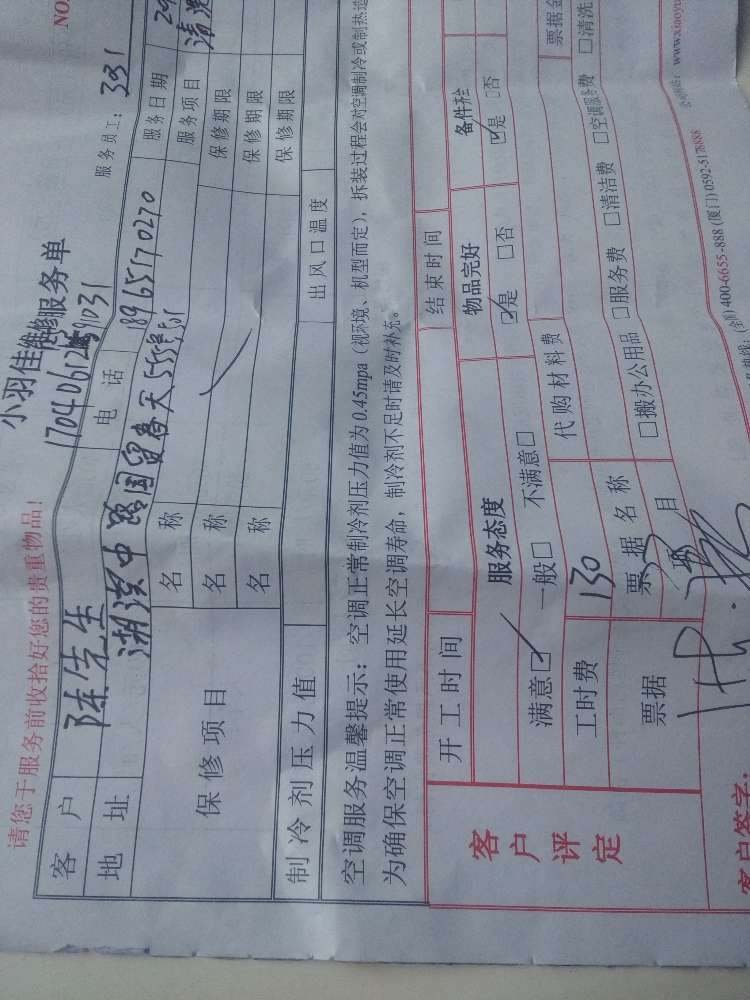 NO.
小羽佳维修服务单
请您于服务前收拾好您的贵重物品!
服务员工: 331
客户 陈先生 电话 8965170270 服务日期 29
地址 服务项目
保修项目 名称 保修期限
名称 保修期限
名称 保修期限
制冷剂压力值 出风口温度
空调服务温馨提示: 空调正常制冷剂压力值为 0.45mpa (视环境、机型而定), 拆装过程会对空调制冷或制热造
为确保空调正常使用延长空调寿命, 制冷剂不足时请及时补充。
开工时间 结束时间
客户评定 服务态度 物品完好 备件栓
满意☑ 一般□ 不满意□ ☑是 □否 ☑是 □否
工时费 130 代购材料费 票据金
票据 票据名称 □搬办公用品 □服务费 □清洁费 □空调服务费 □清洗
项目
(全国) 400-6655-888 (厦门) 0592-5178888
www.xiaoyu
客户签字: